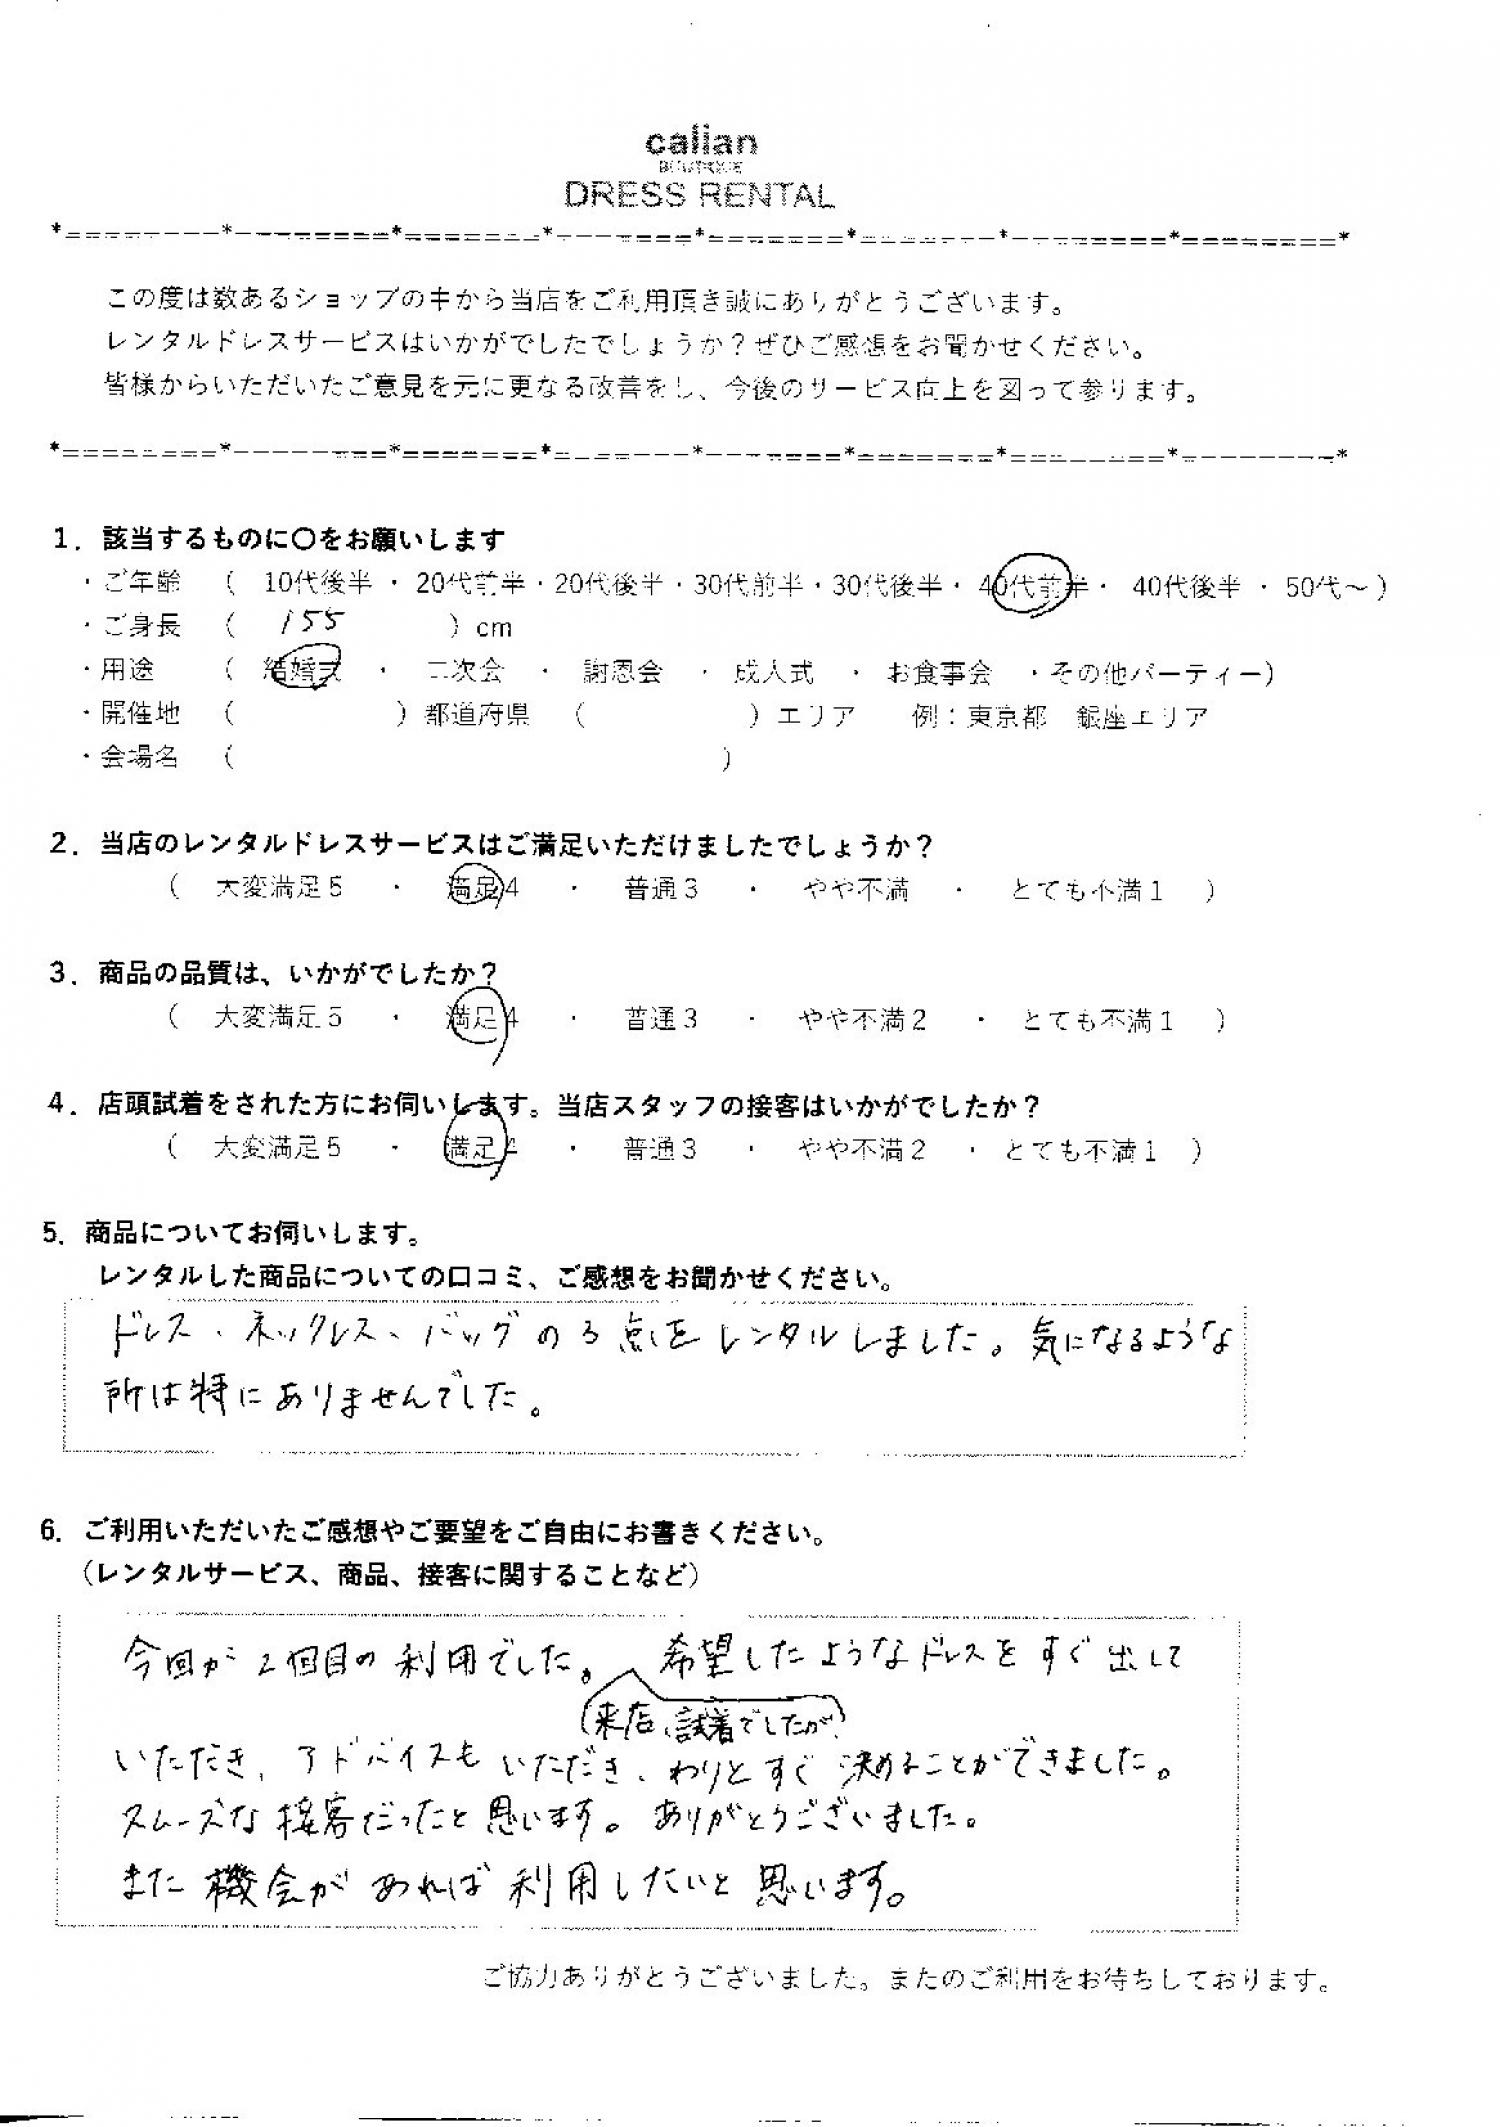 calian
BOUTIQUE
DRESS RENTAL
*========*--------========*=======-*-------=====*=======*=======-*--------=====*========*
この度は数あるショップの中から当店をご利用頂き誠にありがとうございます。
レンタルドレスサービスはいかがでしたでしょうか？ぜひご感想をお聞かせください。
皆様からいただいたご意見を元に更なる改善をし、今後のサービス向上を図って参ります。
*========*--------===*=======*=-------*-------=====*=======*========*---------*
1. 該当するものに〇をお願いします
・ご年齢 （ 10代後半 ・ 20代前半・20代後半・30代前半・30代後半・ 40代前半・ 40代後半 ・ 50代～）
・ご身長 （ 155 ）cm
・用途 （ 結婚式 ・ 二次会 ・ 謝恩会 ・ 成人式 ・ お食事会 ・その他パーティー）
・開催地 （ ）都道府県 （ ）エリア 例：東京都 銀座エリア
・会場名 （ ）
2. 当店のレンタルドレスサービスはご満足いただけましたでしょうか？
（ 大変満足５ ・ 満足４ ・ 普通３ ・ やや不満 ・ とても不満１ ）
3. 商品の品質は、いかがでしたか？
（ 大変満足５ ・ 満足４ ・ 普通３ ・ やや不満２ ・ とても不満１ ）
4. 店頭試着をされた方にお伺いします。当店スタッフの接客はいかがでしたか？
（ 大変満足５ ・ 満足４ ・ 普通３ ・ やや不満２ ・ とても不満１ ）
5. 商品についてお伺いします。
レンタルした商品についての口コミ、ご感想をお聞かせください。
ドレス、ネックレス、バッグの3点をレンタルしました。気になるような
所は特にありませんでした。
6. ご利用いただいたご感想やご要望をご自由にお書きください。
（レンタルサービス、商品、接客に関することなど）
今回が2回目の利用でした。希望したようなドレスをすぐ出して
（来店、試着でしたが）
いただき、アドバイスもいただき、わりとすぐ決めることができました。
スムーズな接客だったと思います。ありがとうございました。
また機会があれば利用したいと思います。
ご協力ありがとうございました。またのご利用をお待ちしております。